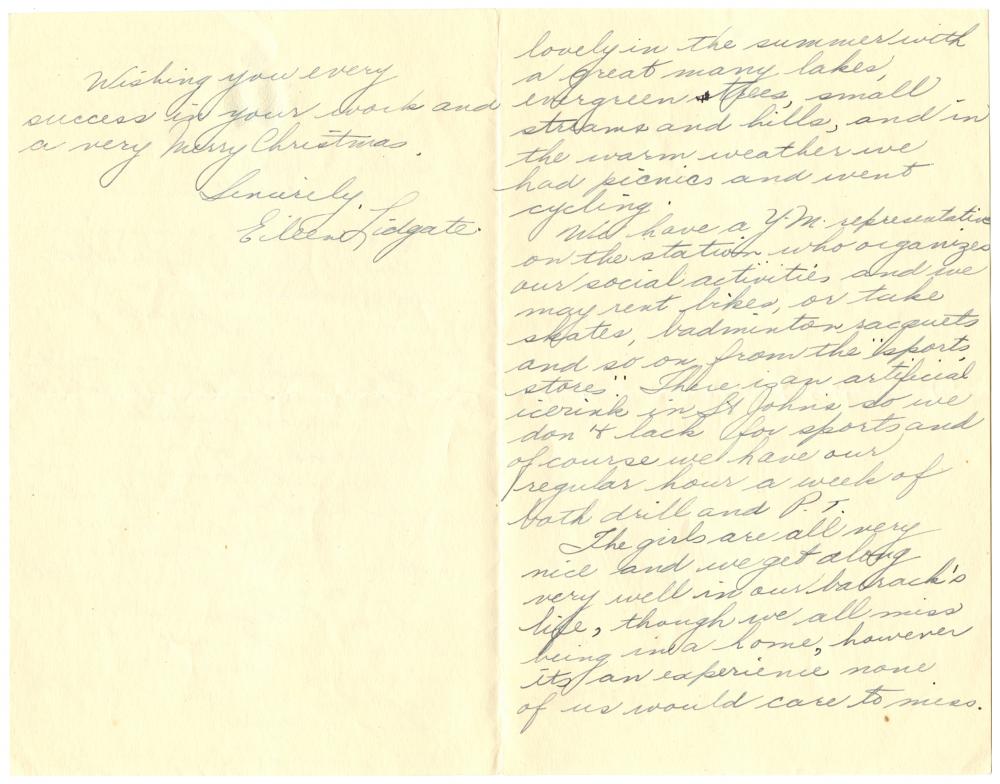 Wishing you every
success in your work and
a very Merry Christmas.
Sincerely,
Eileen Lidgate.
lovely in the summer with
a great many lakes,
evergreen trees, small
streams and hills, and in
the warm weather we
had picnics and went
cycling.
We have a Y.M. representative
on the station who organizes
our social activities and we
may rent bikes, or take
skates, badminton racquets
and so on from the "sports
stores". There is an artificial
icerink in St John's so we
don't lack for sports and
of course we have our
regular hour a week of
both drill and P.T.
The girls are all very
nice and we get along
very well in our barrack's
life, though we all miss
being in a home, however
its an experience none
of us would care to miss.